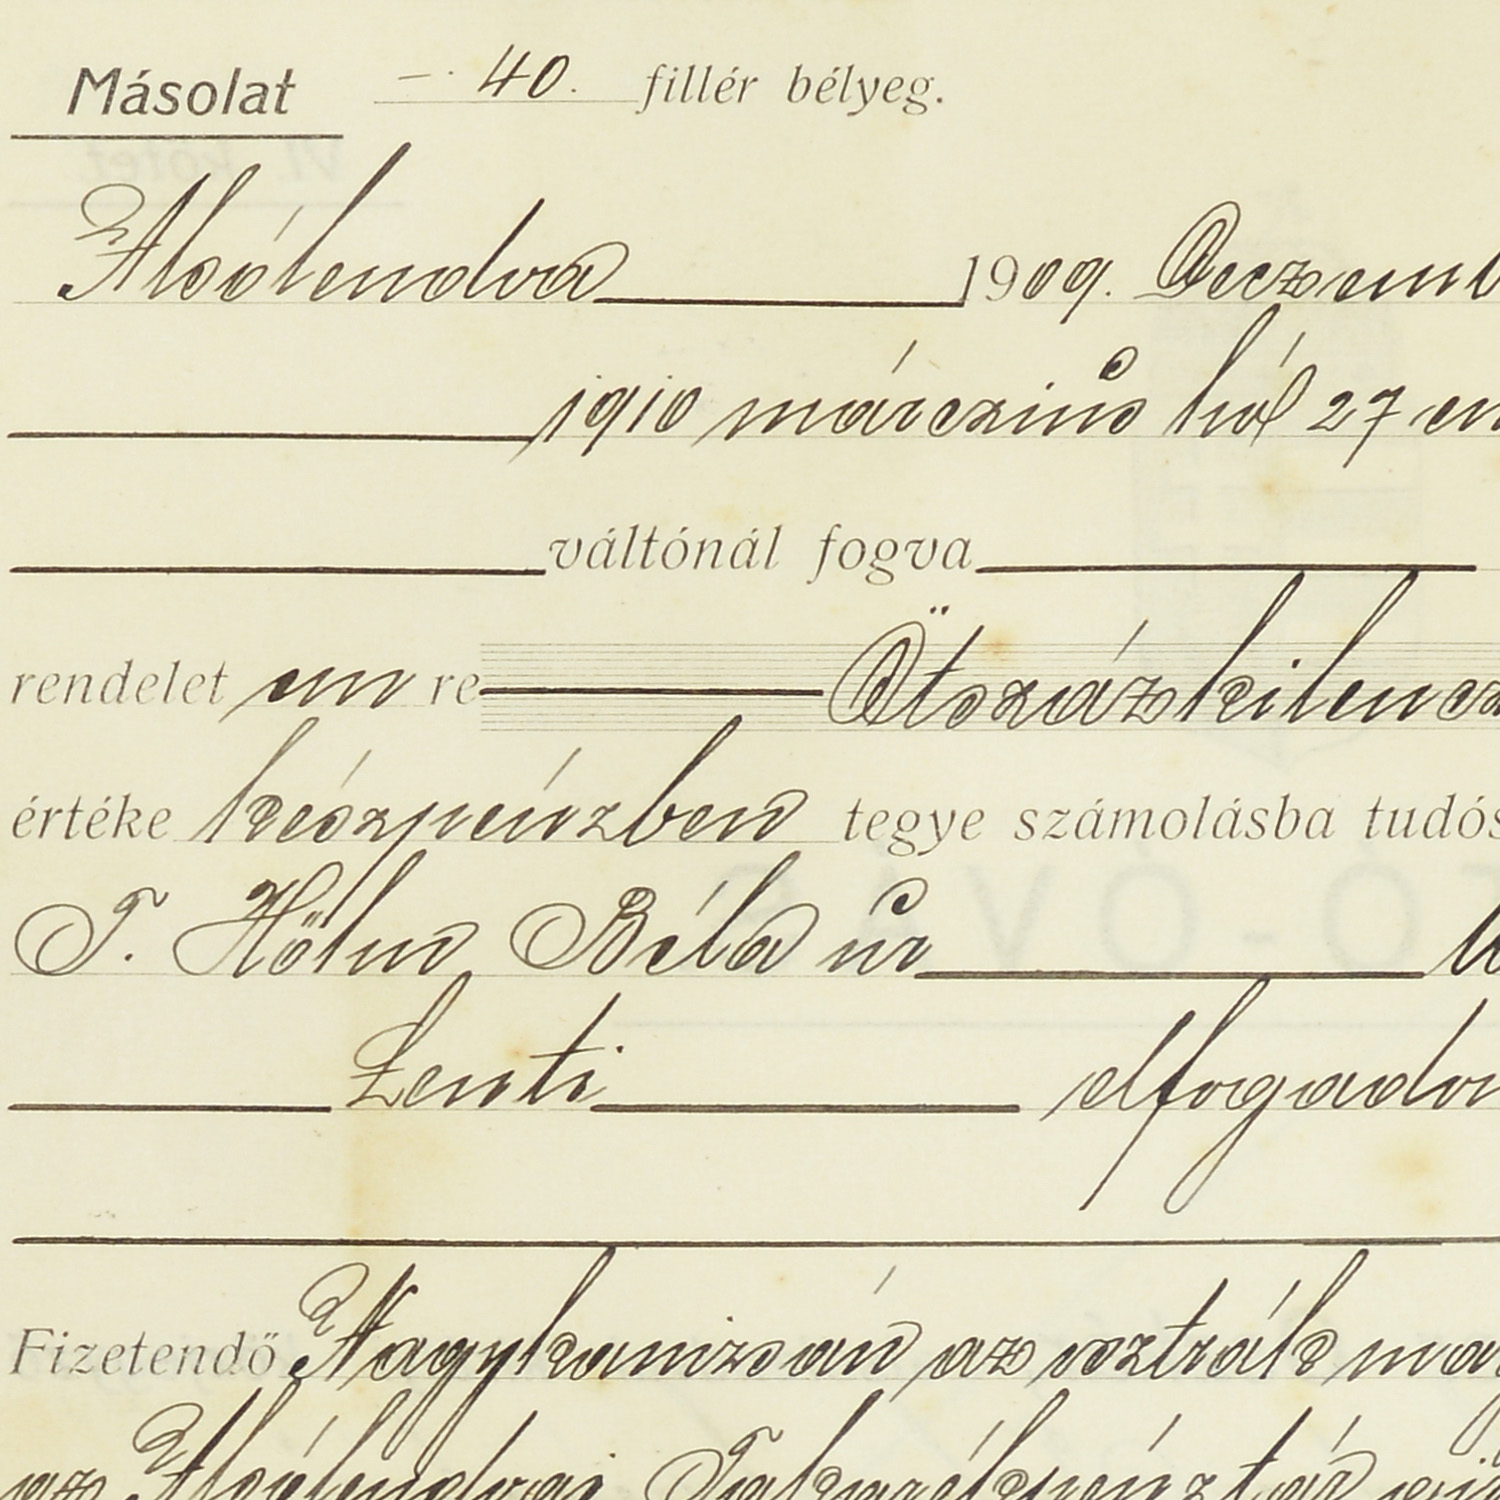 Másolat —. 40. fillér bélyeg.
Alsólendva 1909. Deczemb
1910 márczius hó 27 en
váltónál fogva
rendelet en re Ötszázkilencz
értéke készpénzben tegye számolásba tudós
T. Hölm Béla úr
Lenti elfogadom
Fizetendő Nagykanizsán az osztrák mag
az Alsólendvai Takarékpénztár